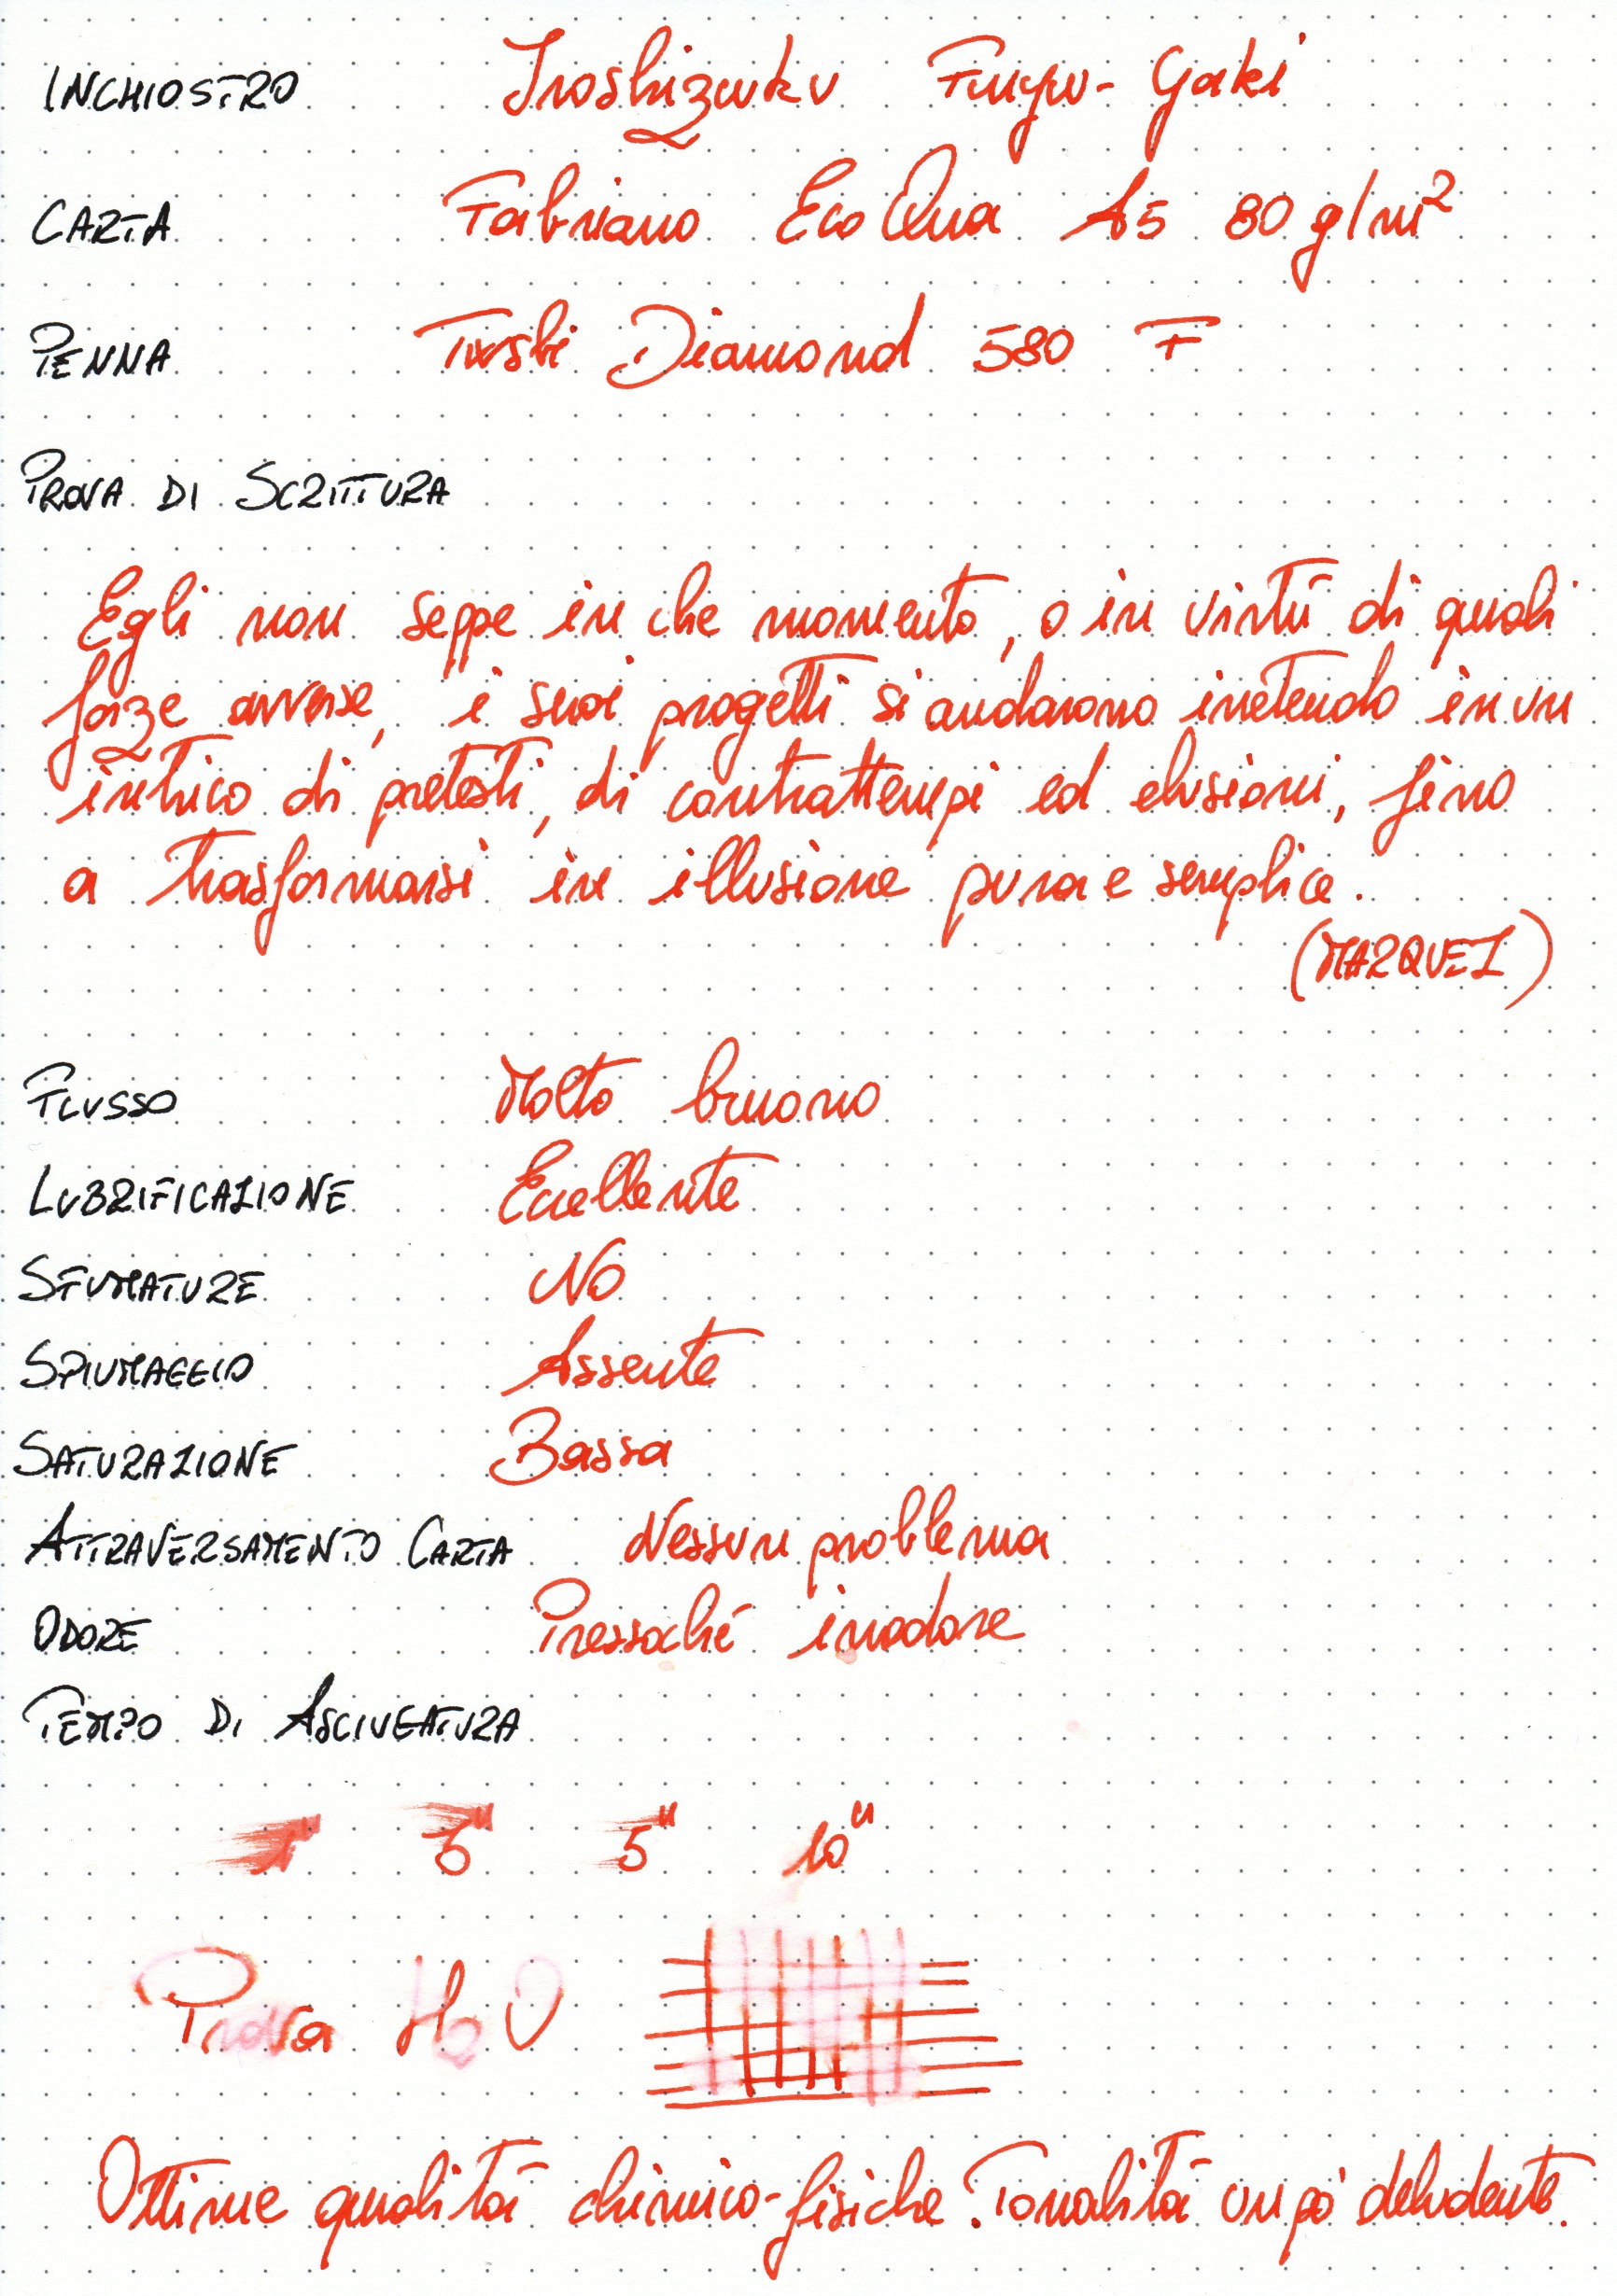 INCHIOSTRO Iroshizuku Fuyu-Gaki
CARTA Fabriano EcoQua A5 80 g/m²
PENNA Twsbi Diamond 580 F
PROVA DI SCRITTURA
Egli non seppe in che momento, o in virtù di quali
forze avverse, i suoi progetti si andarono iretendo in un
intrico di pretesti, di contrattempi ed elusioni, fino
a trasformarsi in illusione pura e semplice.
(MARQUEZ)
FLUSSO Molto buono
LUBRIFICAZIONE Eccellente
SFUMATURE No
SPIUMAGGIO Assente
SATURAZIONE Bassa
ATTRAVERSAMENTO CARTA Nessun problema
ODORE Pressoché inodore
TEMPO DI ASCIUGATURA
1" 3" 5" 10"
Prova H2O
Ottime qualità chimico-fisiche. Tonalità un pò deludente.